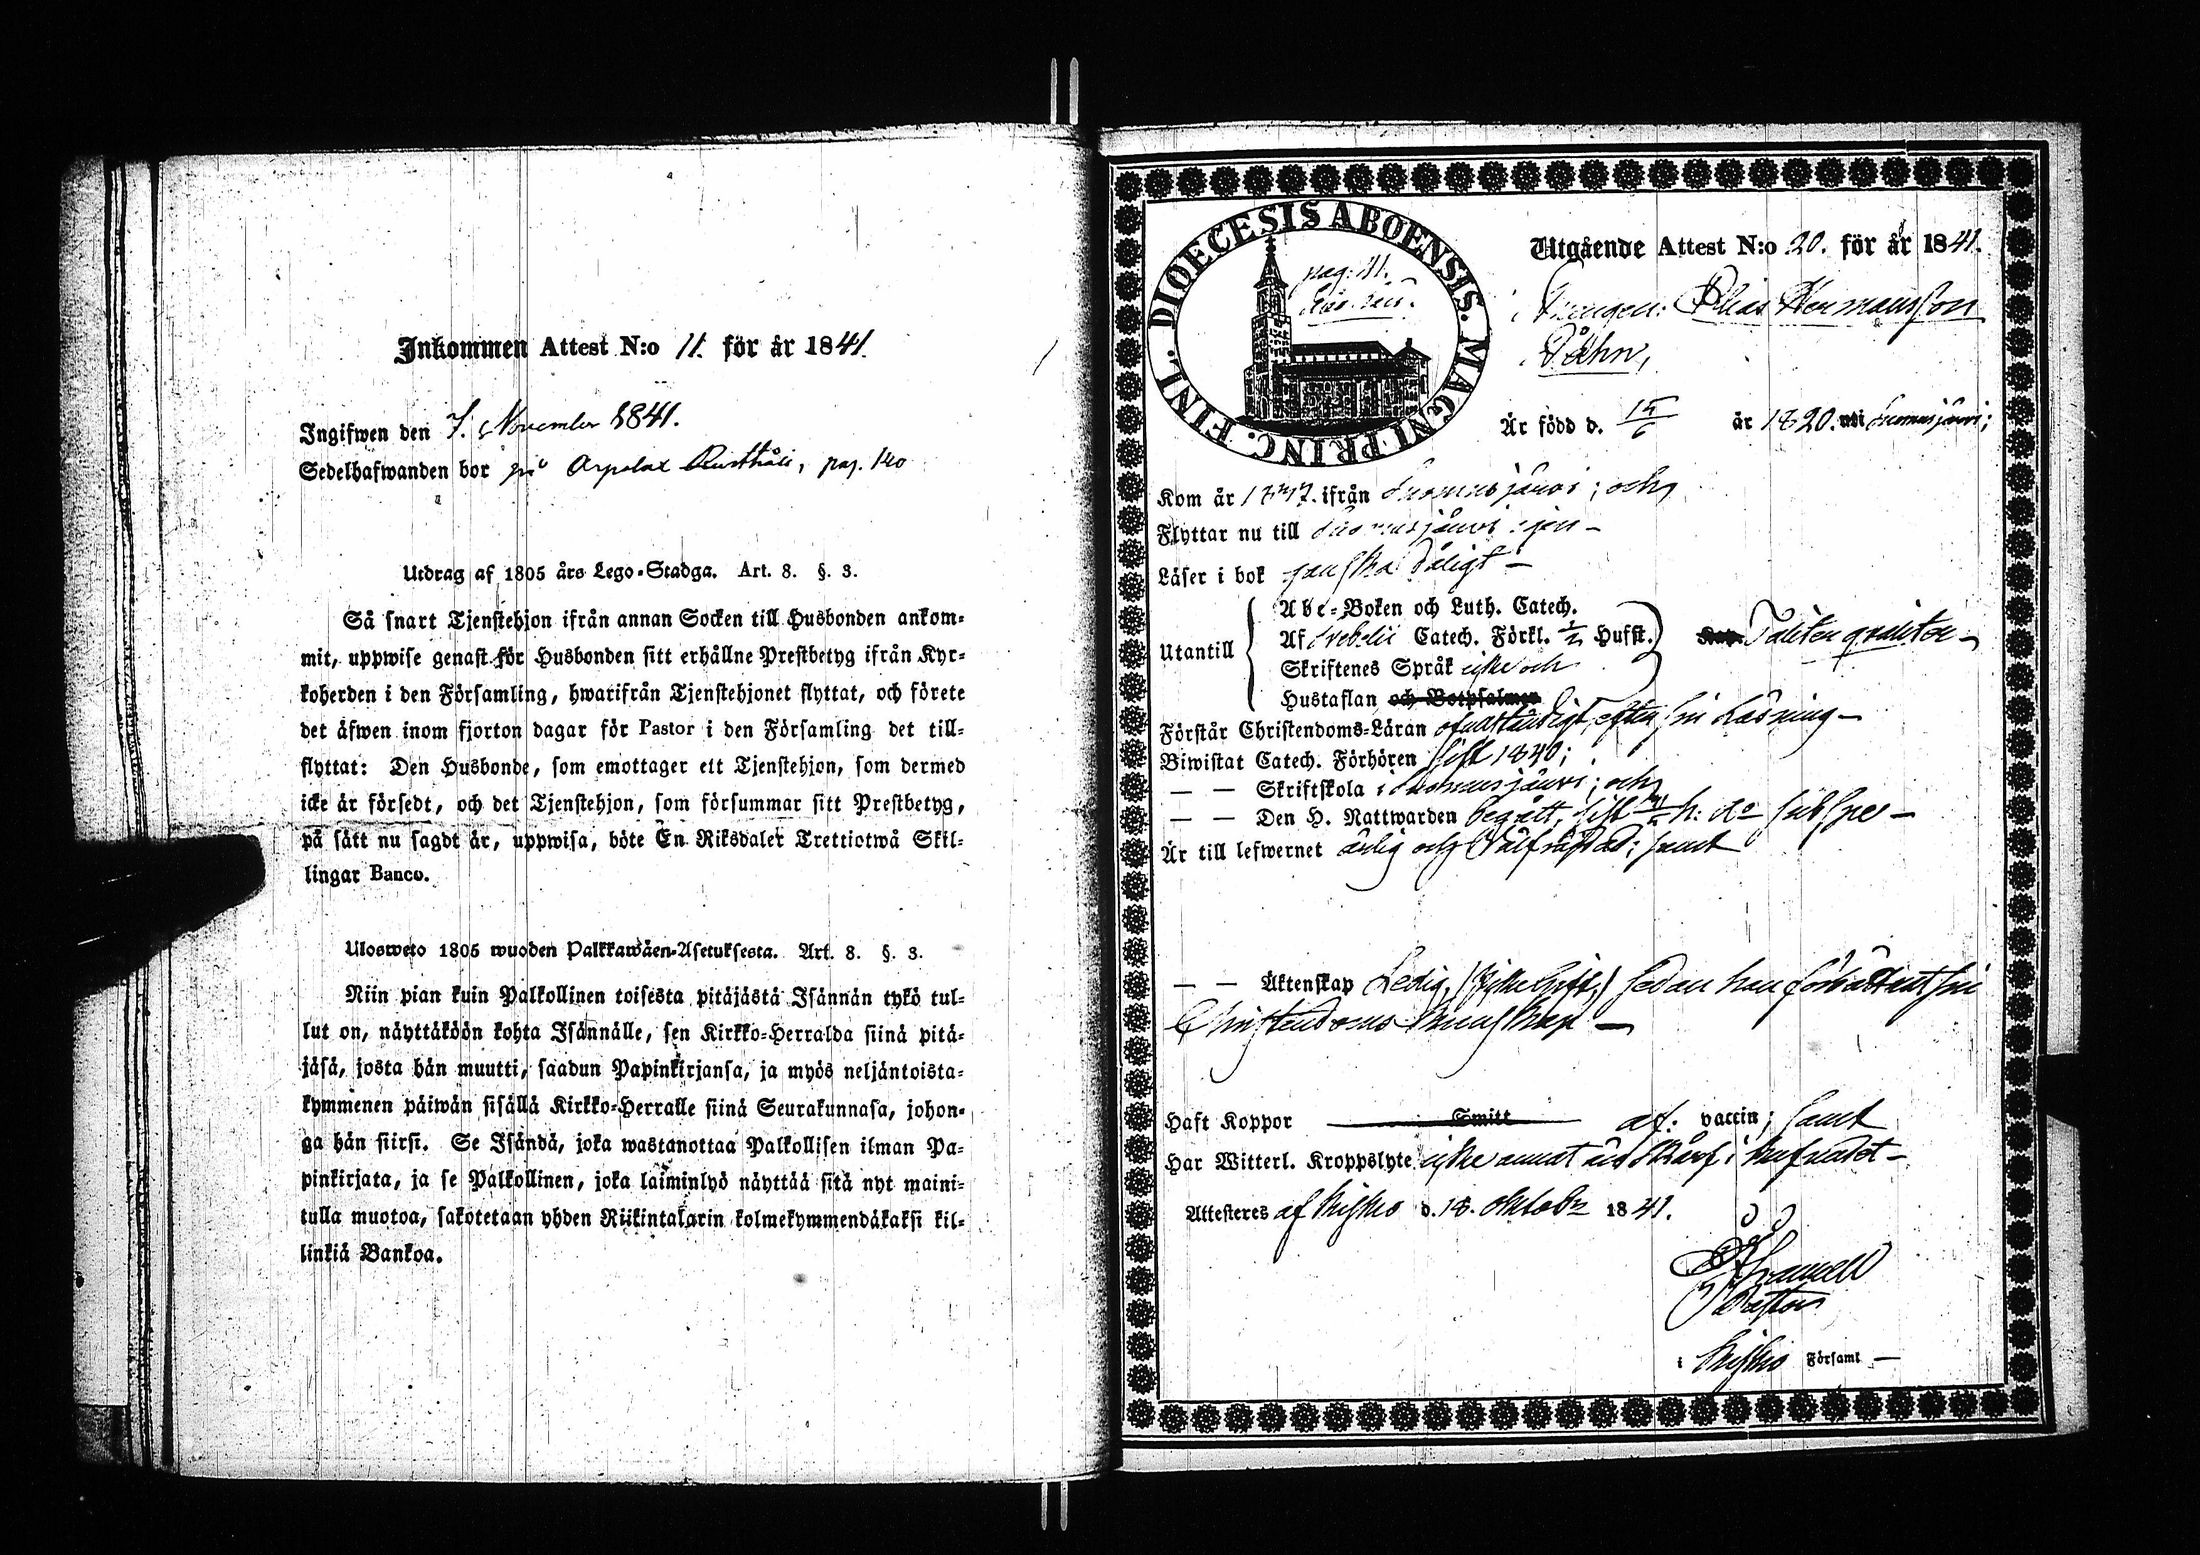 Inkommen Attest N:o 11. för år 1841.
Ingifwen den 7. November 1841.
Sedelhafwanden bor på Arpalax Rusthåll, pag. 140
Utdrag af 1805 års Lego-Stadga. Art. 8. §. 3.
Så snart Tjenstehjon ifrån annan Socken till Husbonden ankom-
mit, uppwise genast för Husbonden sitt erhållne Prestbetyg ifrån Kyr-
koherden i den Församling, hwarifrån Tjenstehjonet flyttat, och förete
det äfwen inom fjorton dagar för Pastor i den Församling det till-
flyttat: Den Husbonde, som emottager ett Tjenstehjon, som dermed
icke är försedt, och det Tjenstehjon, som försummar sitt Prestbetyg,
på sätt nu sagdt är, uppwisa, böte En Riksdaler Trettiotwå Skil-
lingar Banco.
Ulosweto 1805 wuoden Palkkawäen-Asetuksesta. Art. 8. §. 3.
Niin pian kuin Palkollinen toisesta pitäjästä Isännän tykö tul-
lut on, näyttäköön kohta Isännälle, sen Kirkko-Herralda siinä pitä-
jäsä, josta hän muutti, saadun Papinkirjansa, ja myös neljäntoista-
kymmenen päiwän sisällä Kirkko-Herralle siinä Seurakunnasa, johon-
ga hän siirsi. Se Isändä, joka wastanottaa Palkollisen ilman Pa-
pinkirjata, ja se Palkollinen, joka laiminlyö näyttää sitä nyt maini-
tulla muotoa, sakotetaan yhden Riikintalarin kolmekymmendäkaksi kil-
linkiä Bankoa.
DIOECESIS ABOENSIS. MAGNI PRINC. FINL.
pag: 11.
Utgående Attest N:o 20. för år 1841.
Drengen: Elias Hermansson
Påhn,
Är född d. 15/6 år 1820. uti Suomusjärvi;
Kom år ifrån Suomusjärvi; och
Flyttar nu till Suomusjärvi igen –
Läser i bok ganska dåligt –
Utantill
Abc-Boken och Luth. Catech.
Af Svebelii Catech. Förkl. 1/2 Hufst.
Skriftenes Språk icke och
Hustaflan och Botpsalmen
Förstår Christendoms-Läran ofullständigt, efter sin Läsning –
Biwistat Catech. Förhören sist 1840;
— — Skriftskola i Suomusjärvi; och
— — Den H. Nattwarden begått, sist h: do
Är till lefwernet ärlig och samt
— — Äktenskap Ledig, (icke gift,) sedan han förbättrat sin
Christendoms kunskap —
Haft Koppor Smitt af: vaccin; samt
Har Witterl. Kroppslyte icke annat än skårf i hufvudet –
Attesteres af Kisko d. 18. Oktobr 1841.
Pastor
i Kisko Församl —